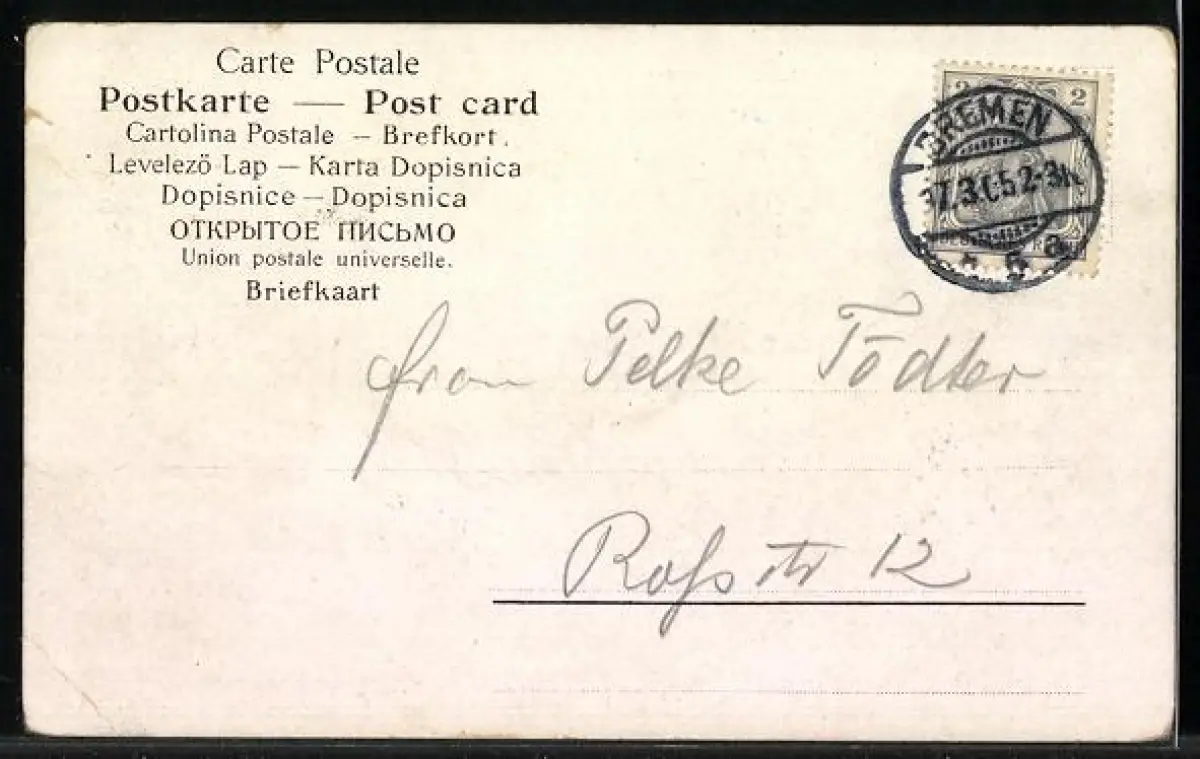 Carte Postale
Postkarte — Post card
Cartolina Postale – Brefkort.
Levelező Lap – Karta Dopisnica
Dopisnice – Dopisnica
ОТКРЫТОЕ ПИСЬМО
Union postale universelle.
Briefkaart
2 2
BREMEN
7.3.05 2-3N
* 5 a
Frau Pelke Tödter
Roßstr 12